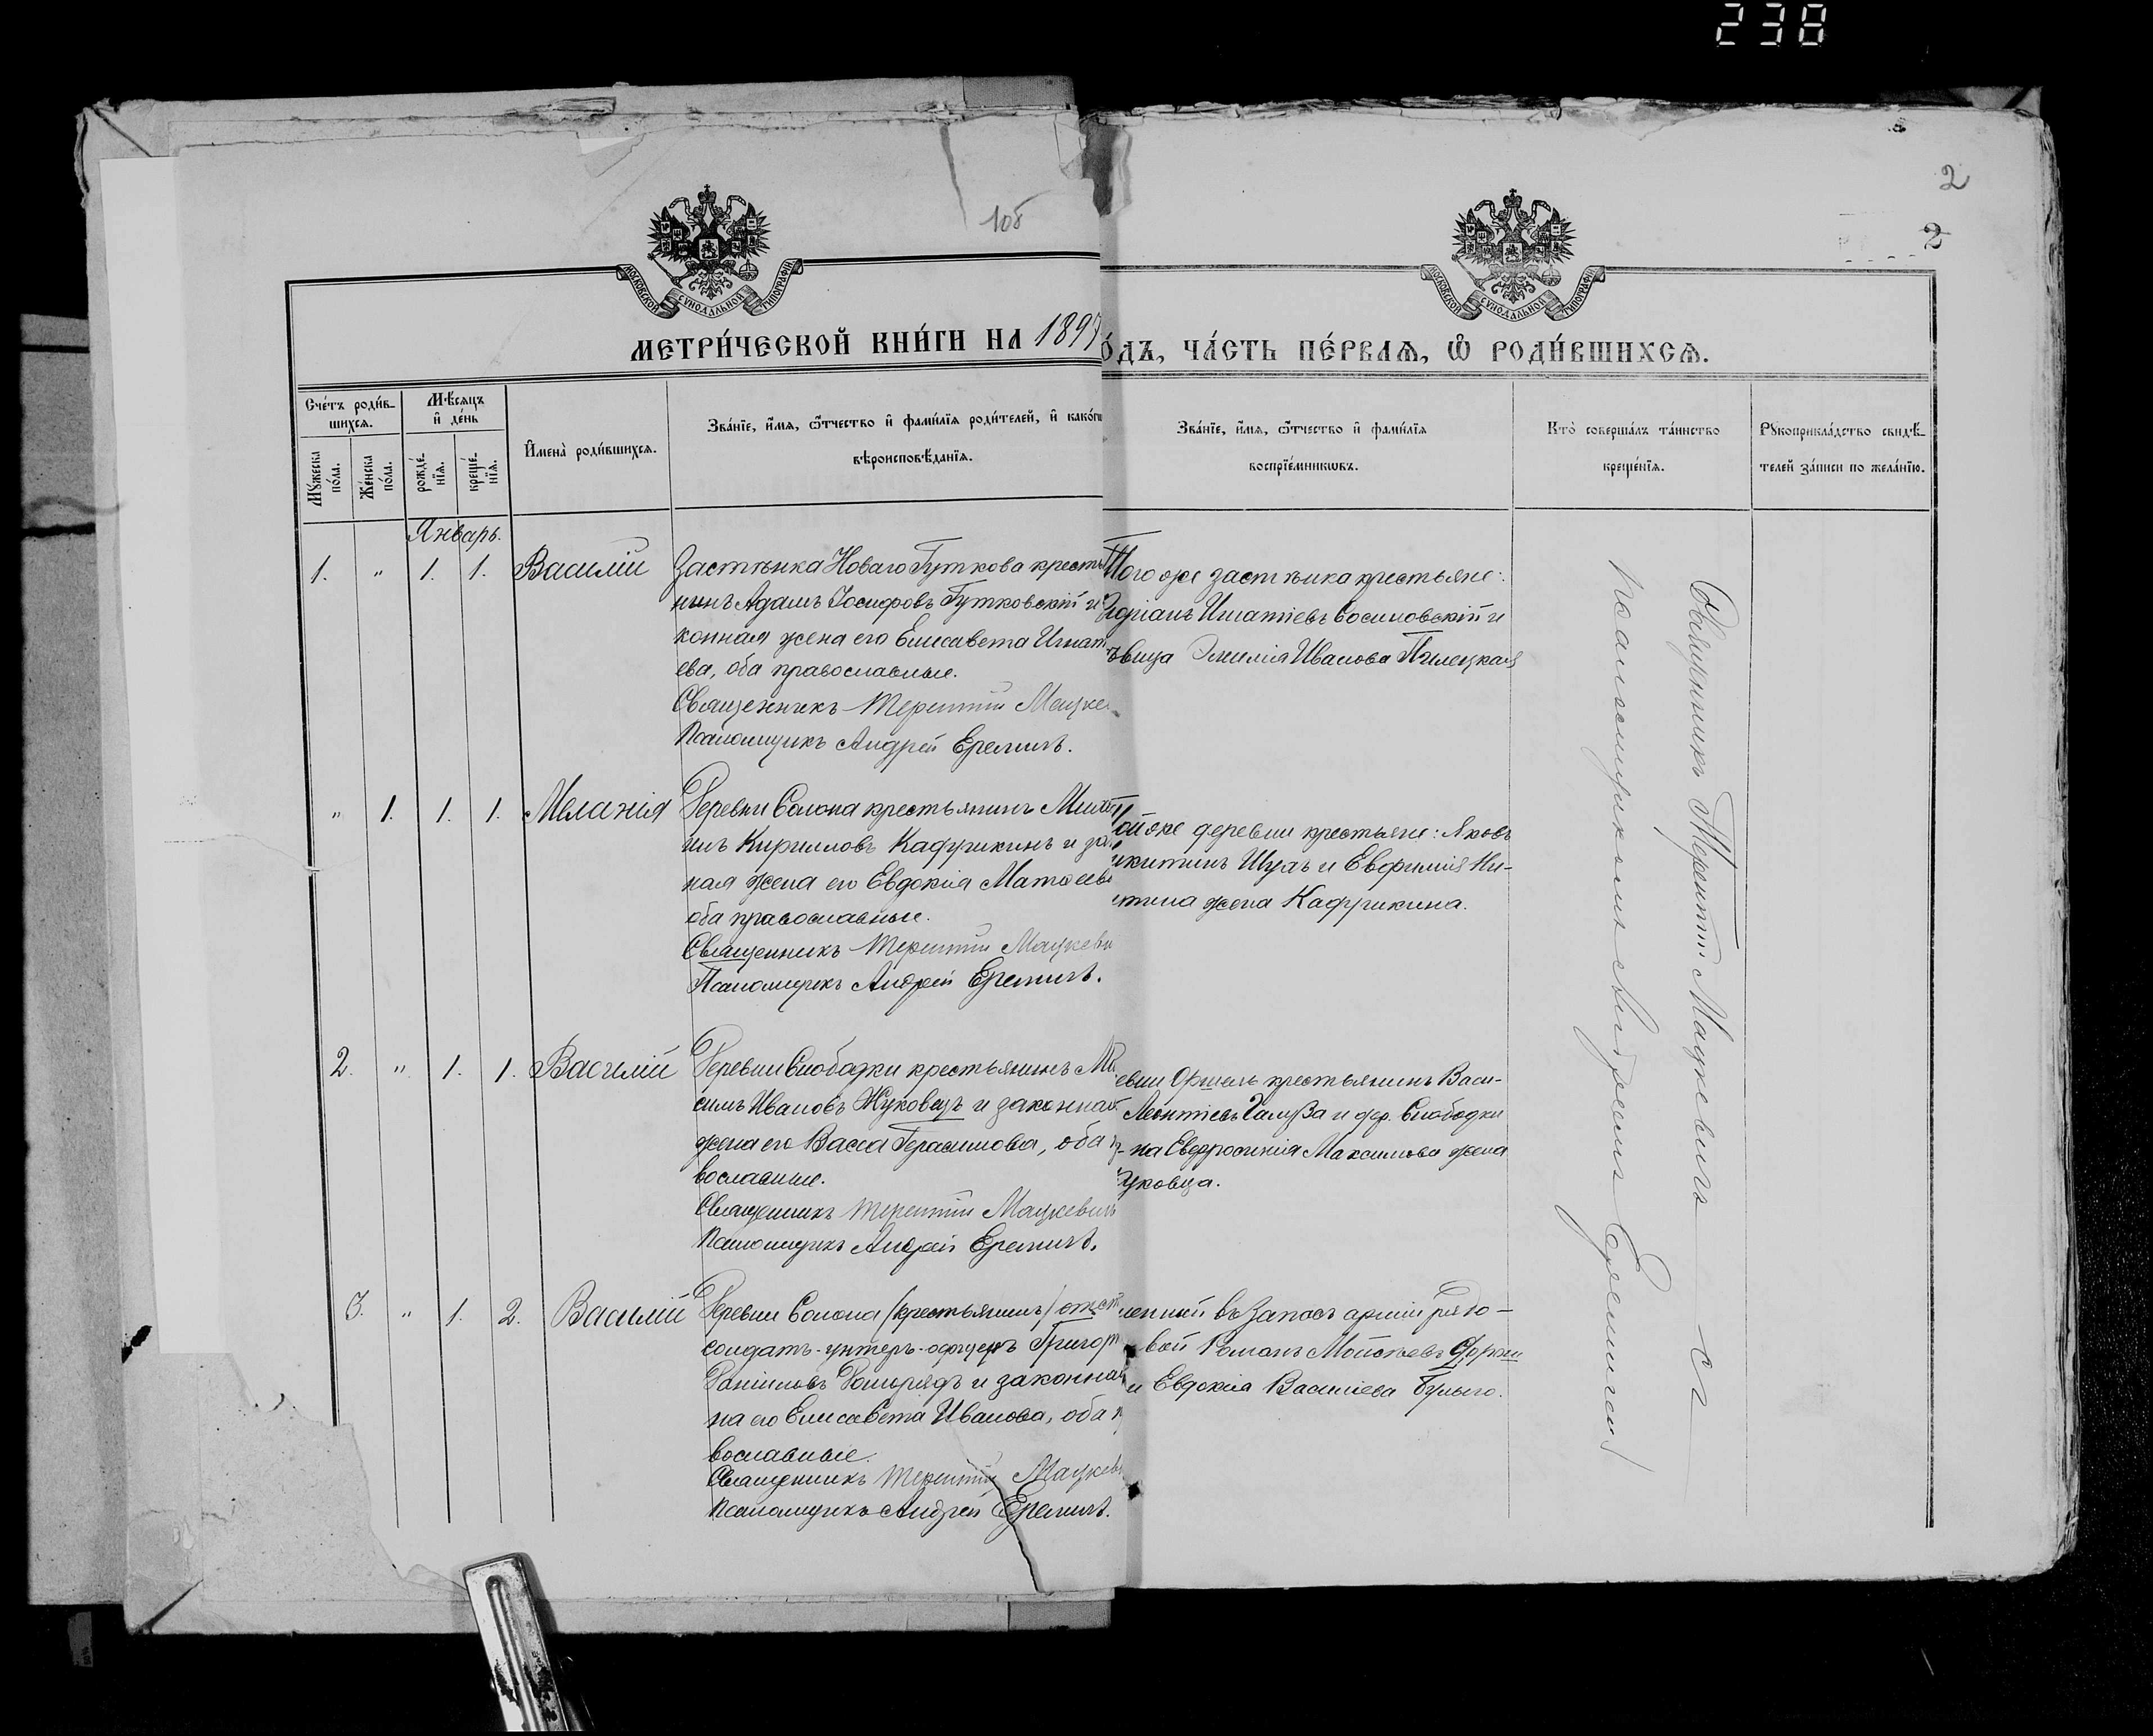 238
2
2
108
МОСКОВСКОЙ СѴНОДАЛЬНОЙ ТИПОГРАФІИ
МОСКОВСКОЙ СѴНОДАЛЬНОЙ ТИПОГРАФІИ
МЕТРИ́ЧЕСКОЙ КНИ́ГИ НА 1897
О́ДЪ, ЧА́СТЬ ПЕ́РВАѦ, Ѽ РОДИ́ВШИХСѦ.
Сче́тъ роди́в-
шихсѧ.
Мꙋ́жеска по́ла.
Же́нска по́ла.
Мѣ́сѧцъ и҆ де́нь
рожде́-нїѧ.
креще́-нїѧ.
И҆мена̀ роди́вшихсѧ.
Зва́нїе, и҆́мѧ, ѻ҆́тчество и҆ фами́лїѧ роди́телей, и҆ како́гѡ
вѣроисповѣ́данїѧ.
Зва́нїе, и҆́мѧ, ѻ҆́тчество и҆ фами́лїѧ
воспрїе́мникѡвъ.
Кто̀ соверша́лъ та́инство
креще́нїѧ.
Рꙋкоприкла́дство свидѣ́-
телей за́писи по жела́нїю.
Январь.
1. " 1. 1. Василій
Застѣнка Новаго Гуткова кресть
нинъ Адамъ Іосифовъ Гутковскій и
конная жена его Елисавета Игнат
ева, оба православные.
Священникъ Терентій Мацке
Псаломщикъ Андрей Еремичъ.
Того же застѣнка крестьяне:
Игнатіевъ Сосиновскій и
ѣвица Эмилія Иванова Пилецкая
" 1. 1. 1. Меланія
Деревни Солона крестьянинъ Миха
илъ Кирилловъ Кафрикинъ и за
ная жена его Евдокія Матѳеев
оба православные.
Священникъ Терентій Мацкеви
Псаломщикъ Андрей Еремичъ.
ой же деревни крестьяне: Яковъ
икитинъ Шукъ и Евфимія Ни-
итина жена Кафрикина.
2. " 1. 1. Василій
Деревни Слободки крестьянинъ Ма
симъ Ивановъ Жуковецъ и законная
жена его Васса Герасимова, оба
вославные.
Священникъ Терентій Мацкевичъ
Псаломщикъ Андрей Еремичъ.
евни крестьянинъ Васи-
Леонтіевъ Галуза и дер. Слободки
на Евфросинія Максимова жена
уковца.
3. " 1. 2. Василій
Деревни Солона (крестьянинъ) отст
солдатъ-унтеръ-офицеръ Григор
Даніиловъ и законная
на его Елисавета Иванова, оба п
вославные.
Священникъ Терентій Мацкеви
Псаломщикъ Андрей Еремичъ.
ленный въ запасъ арміи рядо-
вой Романъ Моисеевъ
и Евдокія Василіева Булыго.
Священникъ Терентій Мацкевичъ съ
псаломщикомъ Андреемъ Еремичемъ